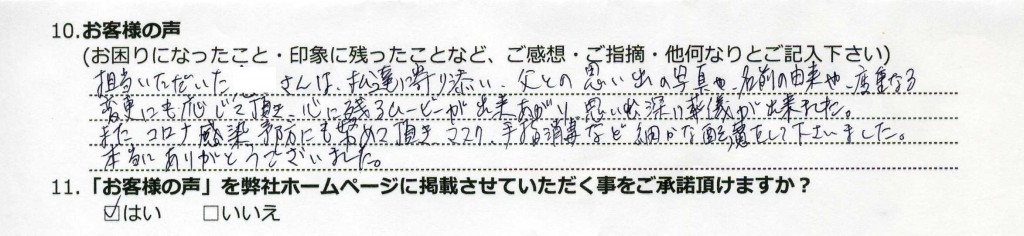 10.お客様の声
(お困りになったこと・印象に残ったことなど、ご感想・ご指摘・他何なりとご記入下さい)
担当いただいた さんは、私達に寄り添い、父との思い出の写真や、名前の由来や、度重なる
変更にも応じて頂き、心に残るムービーが出来あがり、思い出深い葬儀が出来ました。
また、コロナ感染予防にも努めて頂き マスク、手指消毒など 細かな配慮をして下さいました。
本当にありがとうございました。
11.「お客様の声」を弊社ホームページに掲載させていただく事をご承諾頂けますか？
☑はい □いいえ